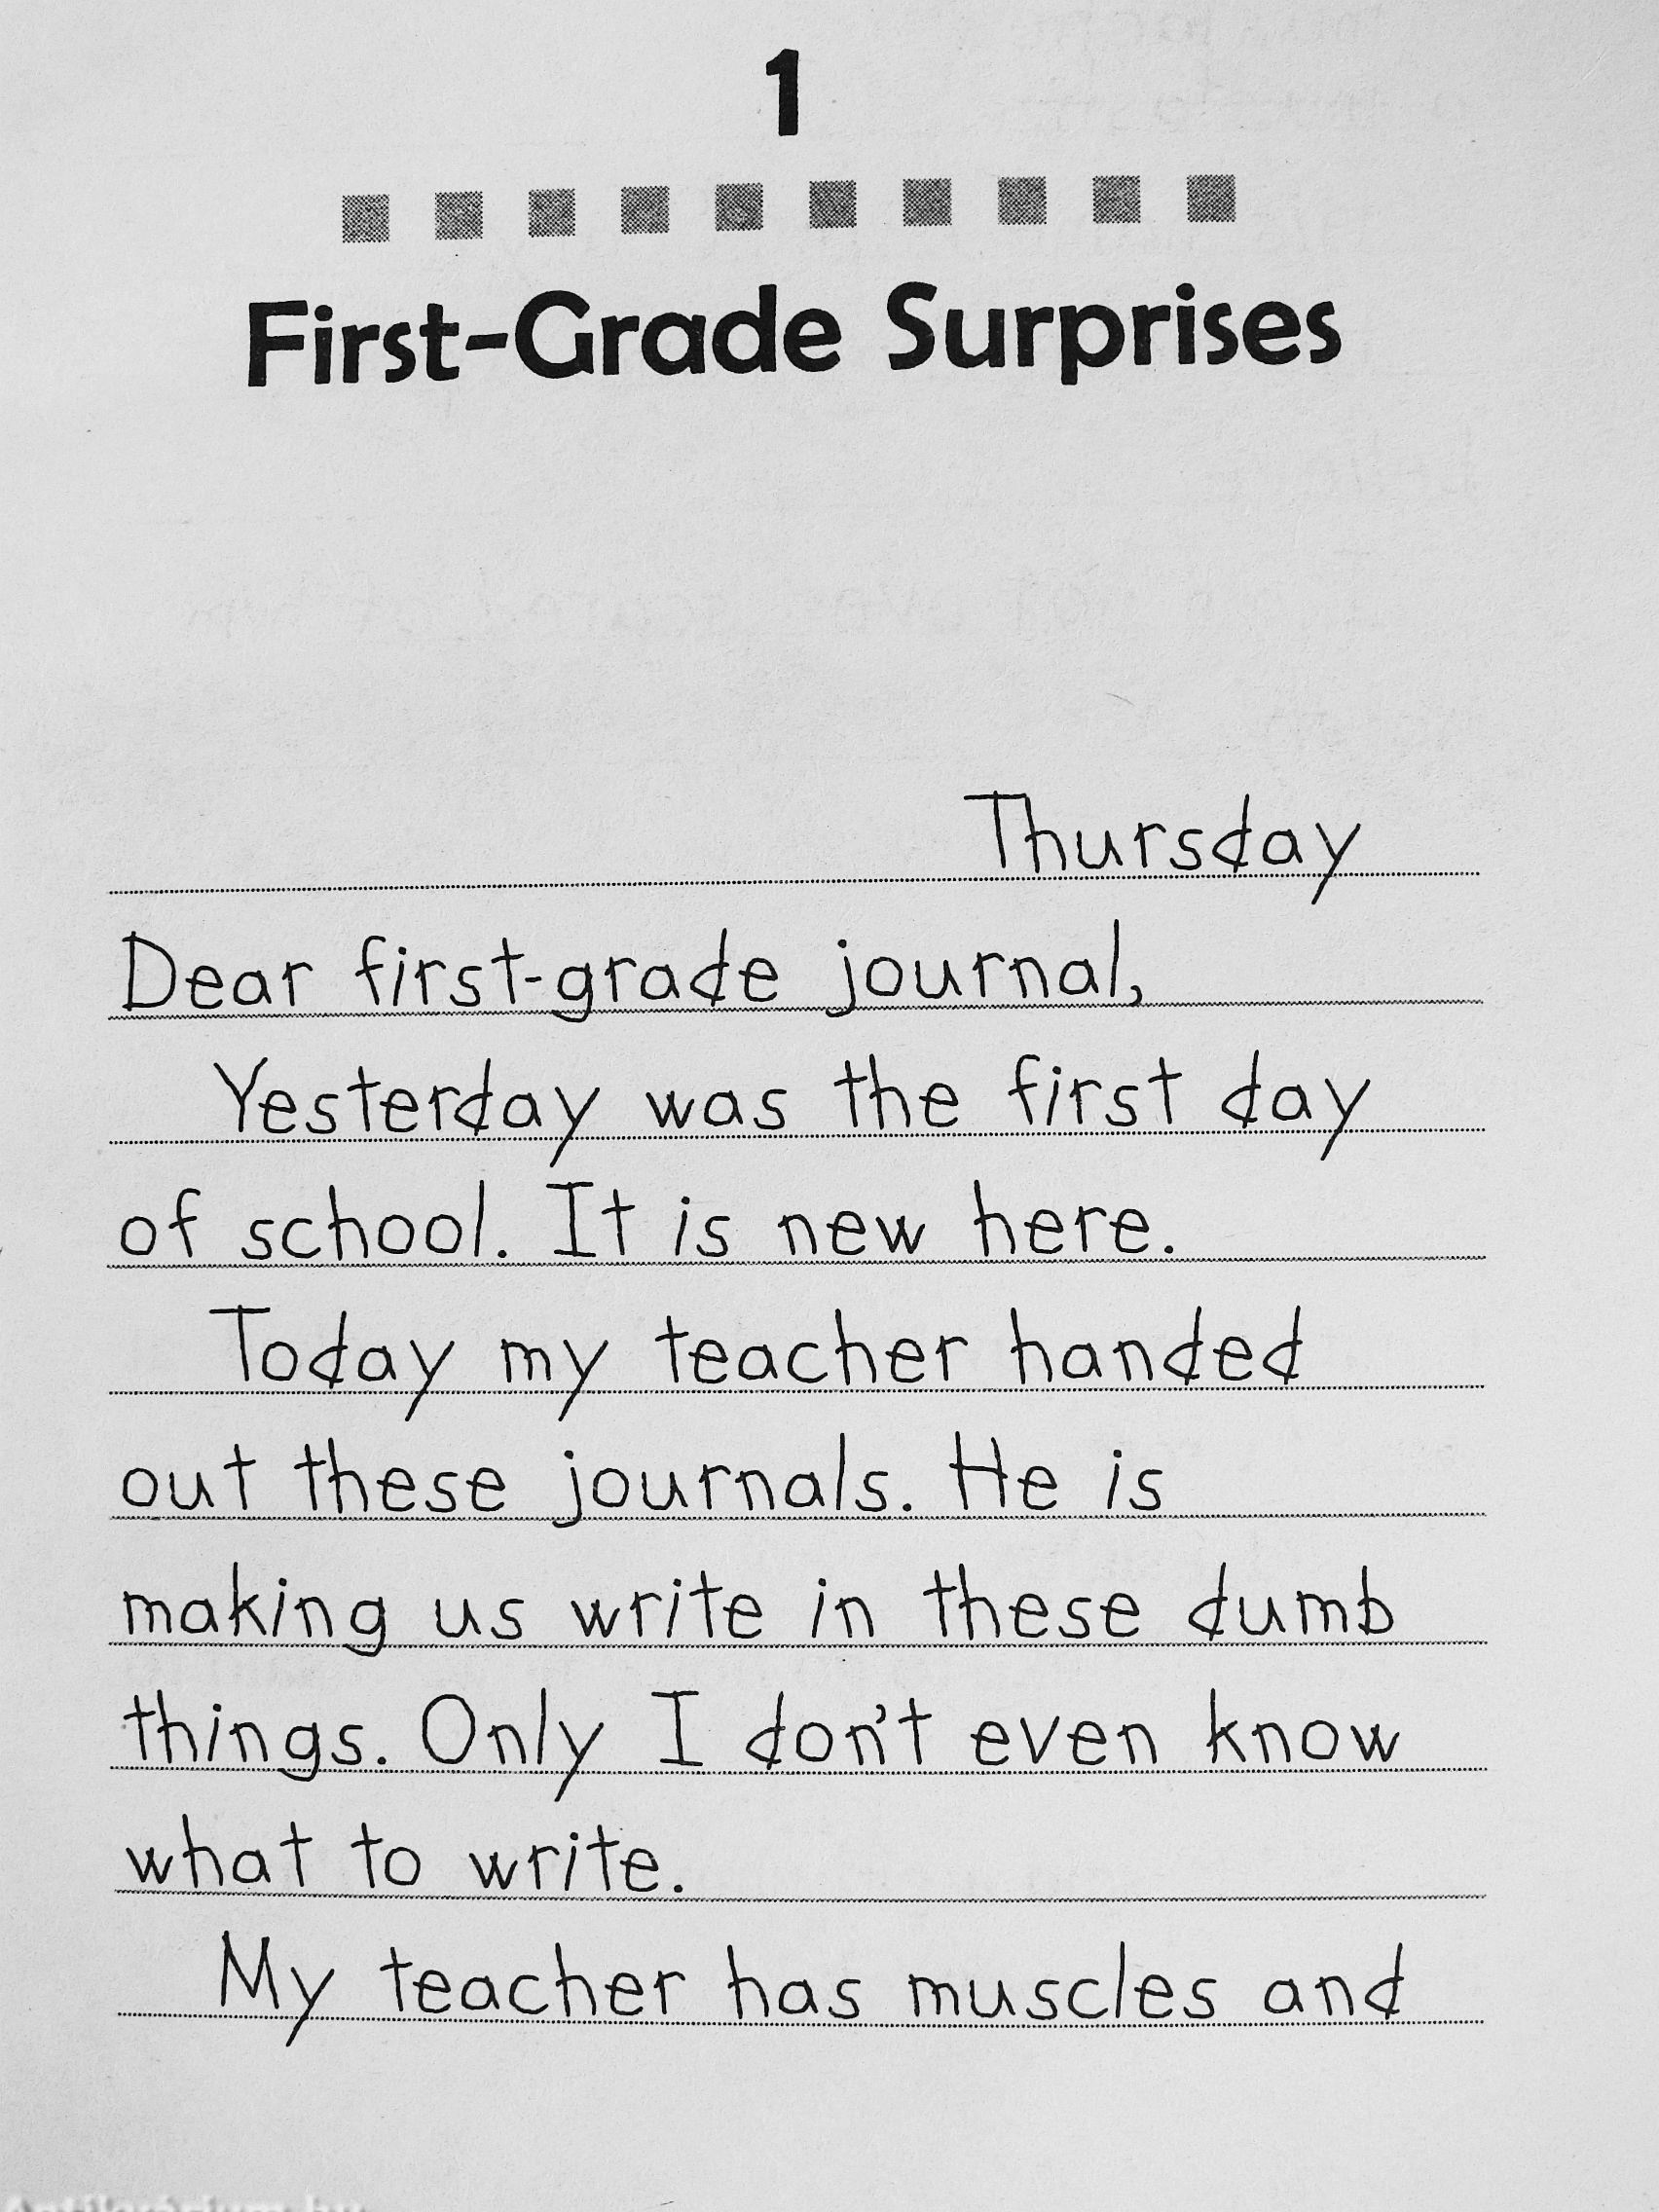 1
First-Grade Surprises
Thursday
Dear first-grade journal,
Yesterday was the first day
of school. It is new here.
Today my teacher handed
out these journals. He is
making us write in these dumb
things. Only I don't even know
what to write.
My teacher has muscles and